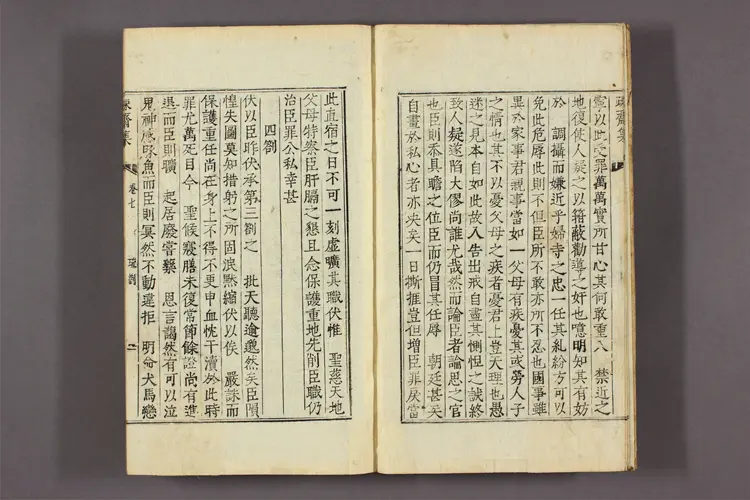 疎齋集
憲以此之罪萬萬實所甘心其何敢重入 禁近之
地復使人疑之以籍蔽勸導之奸也噫明知其有妨
於 調攝而嫌近乎婦寺之忠一任其紛紛方可以
免此危辱此則不但臣所不敢亦所不忍也國事雖
異於家事君親事當如一父母有疾憂其或勞人子
之情也其不以憂父母之疾者憂君上豈天理也愚
迷之見本自如此故入告出戒自盡其惻怛之誠終
致人疑遂陷大僇尚誰尤哉然而論臣者論思之官
也臣則忝具瞻之位臣而仍冒其任辱 朝廷甚矣
自畫於私心者亦央矣一日撕捱豈但增臣罪戾當
此直宿之日不可一刻虛曠其職伏惟 聖慈天地
父母特察臣肝膈之懇且念保護重地先削臣職仍
治臣罪公私幸甚
四劄
伏以臣昨伏承第三劄之 批天聽逾邈然矣臣隕
惶失圖莫知措躬之所固泯默縮伏以俟 嚴誅而
保護重任尚在身上不得不更申血忱干瀆於此時
罪尤萬死目今 聖候寢膳未復常節餘證尚有進
退而臣則曠 起居廢嘗藥 恩言藹然有可以泣
鬼神感豚魚而臣則冥然不動違拒 明命犬馬戀
疎齋集
卷七
疏劄